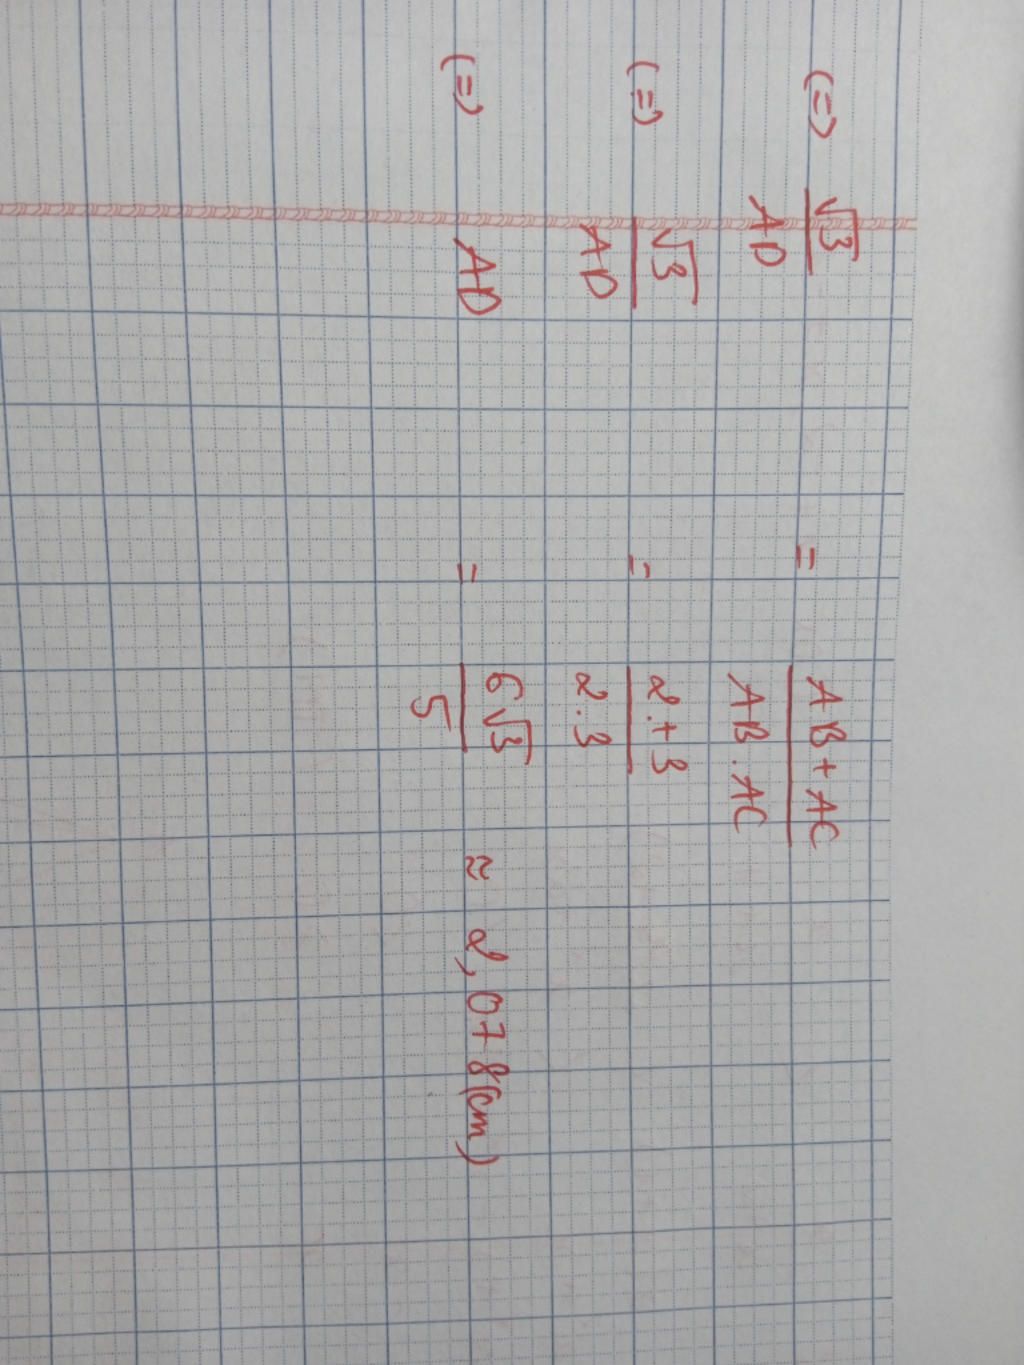 (=) √3/AD = AB + AC/AB . AC
(=) √3/AD = 2 + 3/2 . 3
(=) AD = 6√3/5 ≈ 2,078(cm)